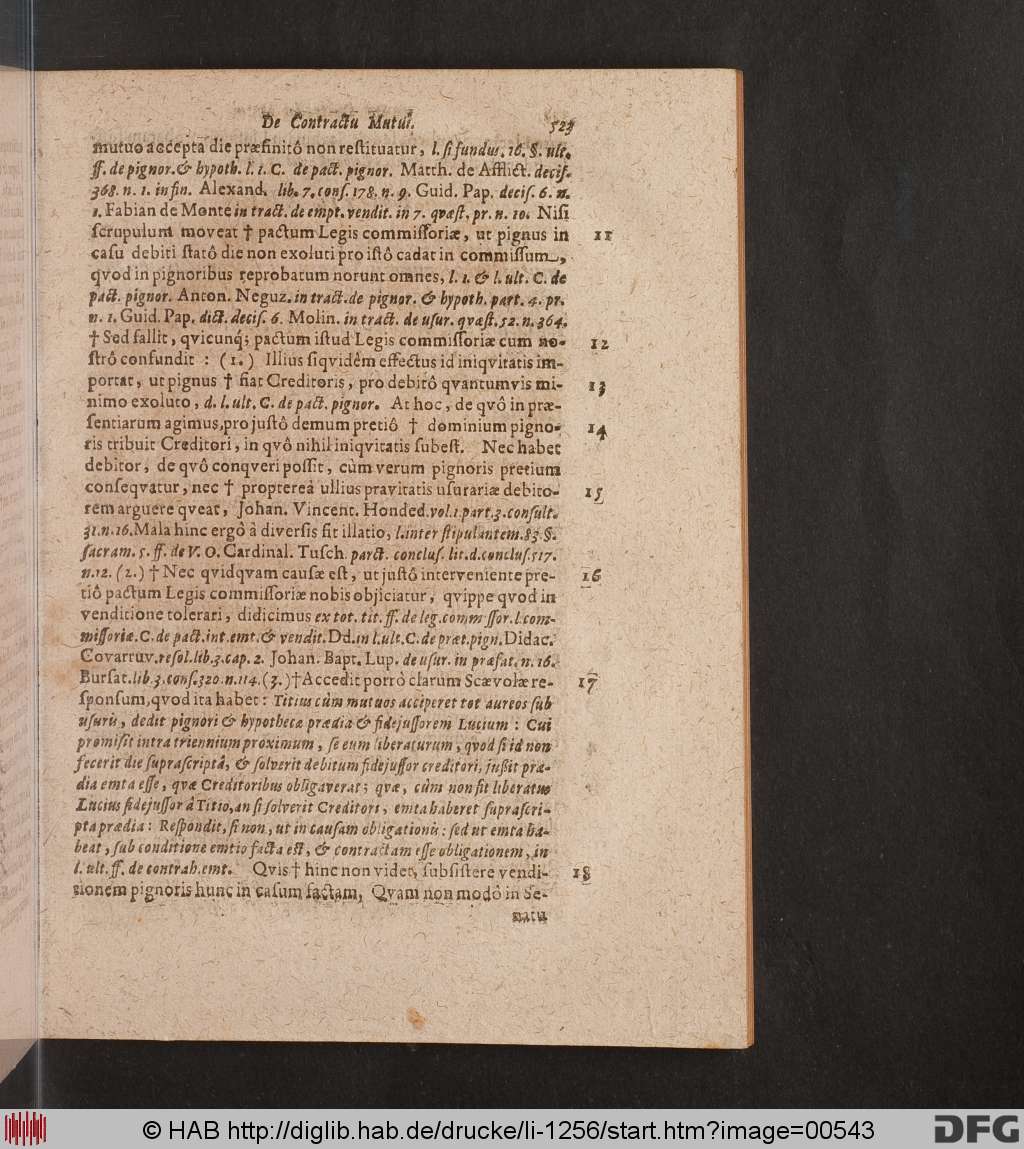 De Contractu Mutui. 523
mutuo accepta die præfinitô non restituatur, l. si fundus. 16. §. ult.
ff. de pignor. & hypoth. l. 1. C. de pact. pignor. Matth. de Afflict. decis.
368. n. 1. in fin. Alexand. lib. 7. cons. 178. n. 9. Guid. Pap. decis. 6. n.
1. Fabian de Monte in tract. de empt. vendit. in 7. quæst. pr. n. 10. Nisi
scrupulum moveat † pactum Legis commissoriæ, ut pignus in 11
casu debiti statô die non exoluti pro istô cadat in commissum,
qvod in pignoribus reprobatum norunt omnes, l. 1. & l. ult. C. de
pact. pignor. Anton. Neguz. in tract. de pignor. & hypoth. part. 4. pr.
n. 1. Guid. Pap. dict. decis. 6. Molin. in tract. de usur. qvæst. 52. n. 364.
† Sed fallit, qvicunq; pactum istud Legis commissoriæ cum no- 12
strô confundit : (1.) Illius siqvidèm effectus id iniqvitatis im-
portat, ut pignus † fiat Creditoris, pro debitô qvantumvis mi- 13
nimo exoluto, d. l. ult. C. de pact. pignor. At hoc, de qvô in præ-
sentiarum agimus, pro justô demum pretiô † dominium pigno- 14
ris tribuit Creditori, in qvô nihil iniqvitatis subest. Nec habet
debitor, de qvô conqveri possit, cùm verum pignoris pretium
conseqvatur, nec † propterea ullius pravitatis usurariæ debito- 15
rem arguere qveat, Johan. Vincent. Honded. vol. 1. part. 3. consult.
31. n. 16. Mala hinc ergò à diversis fit illatio, l. inter stipulantem. 83. §.
sacram. 5. ff. de V. O. Cardinal. Tusch. parct. conclus. lit. d. conclus. 517.
n. 12. (2.) † Nec qvidqvam causæ est, ut justô interveniente pre- 16
tiô pactum Legis commissoriæ nobis objiciatur, qvippe qvod in
venditione tolerari, didicimus ex tot. tit. ff. de leg. commissor. l. com-
missoriæ. C. de pact. int. emt. & vendit. Dd. in l. ult. C. de præt. pign. Didac.
Covarruv. resol. lib. 3. cap. 2. Johan. Bapt. Lup. de usur. in præfat. n. 16.
Bursat. lib. 3. cons. 320. n. 114. (3.) † Accedit porrò clarum Scævolæ re- 17
sponsum, qvod ita habet : Titius cùm mutuos acciperet tot aureos sub
usuris, dedit pignori & hypothecæ prædia & fidejussorem Lucium : Cui
promisit intra triennium proximum, se eum liberaturum, qvod si id non
fecerit die suprascriptâ, & solverit debitum fidejussor creditori, jußit præ-
dia emta esse, qvæ Creditoribus obligaverat; qvæ, cùm non sit liberatus
Lucius fidejussor à Titio, an si solverit Creditori, emta haberet suprascri-
pta prædia : Respondit, si non, ut in causam obligationis : sed ut emta ha-
beat, sub conditione emtio facta est, & contractam esse obligationem, in
l. ult. ff. de contrah. emt. Qvis † hinc non videt, subsistere vendi- 18
tionem pignoris hunc in casum factam, Qvam non modò in Se-
natu
© HAB http://diglib.hab.de/drucke/li-1256/start.htm?image=00543
DFG